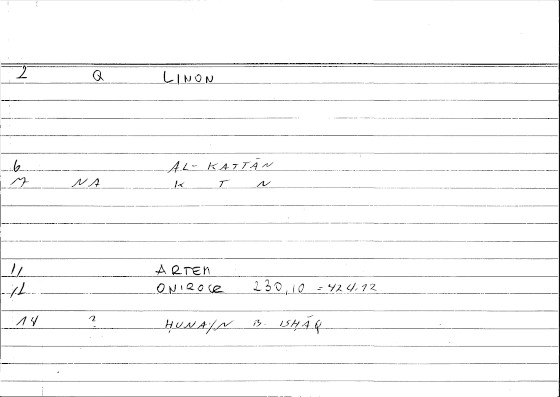 2 Q LINON
6 AL-KATTĀN
7 NA K T N
11 ARTEM
12 ONIROCR 230,10 = 424.12
14 ? ḤUNAYN B. ISḤĀQ